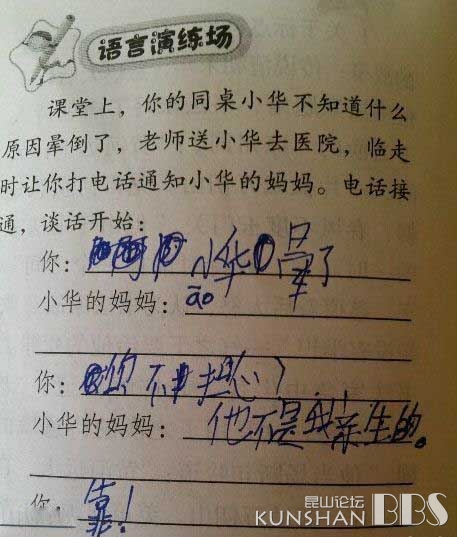 语言演练场
课堂上，你的同桌小华不知道什么
原因晕倒了，老师送小华去医院，临走
时让你打电话通知小华的妈妈。电话接
通，谈话开始：
你：小华晕了
小华的妈妈：āo
你：你不担心？
小华的妈妈：他不是我亲生的。
你：靠！
昆山论坛
KUNSHAN BBS